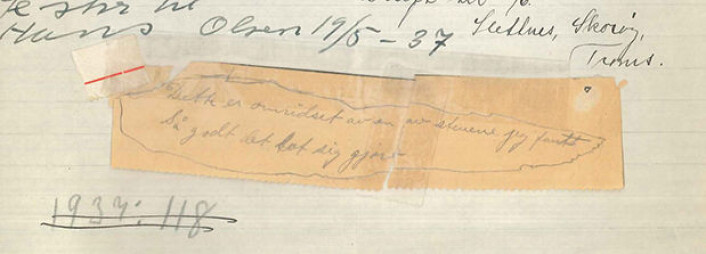 til
Hans Olsen 19/5-37
Slettnes, Skorøy,
Troms.
Dette er omridset av en av stenene jeg fant
Så godt det lot sig gjøre
1937: 118